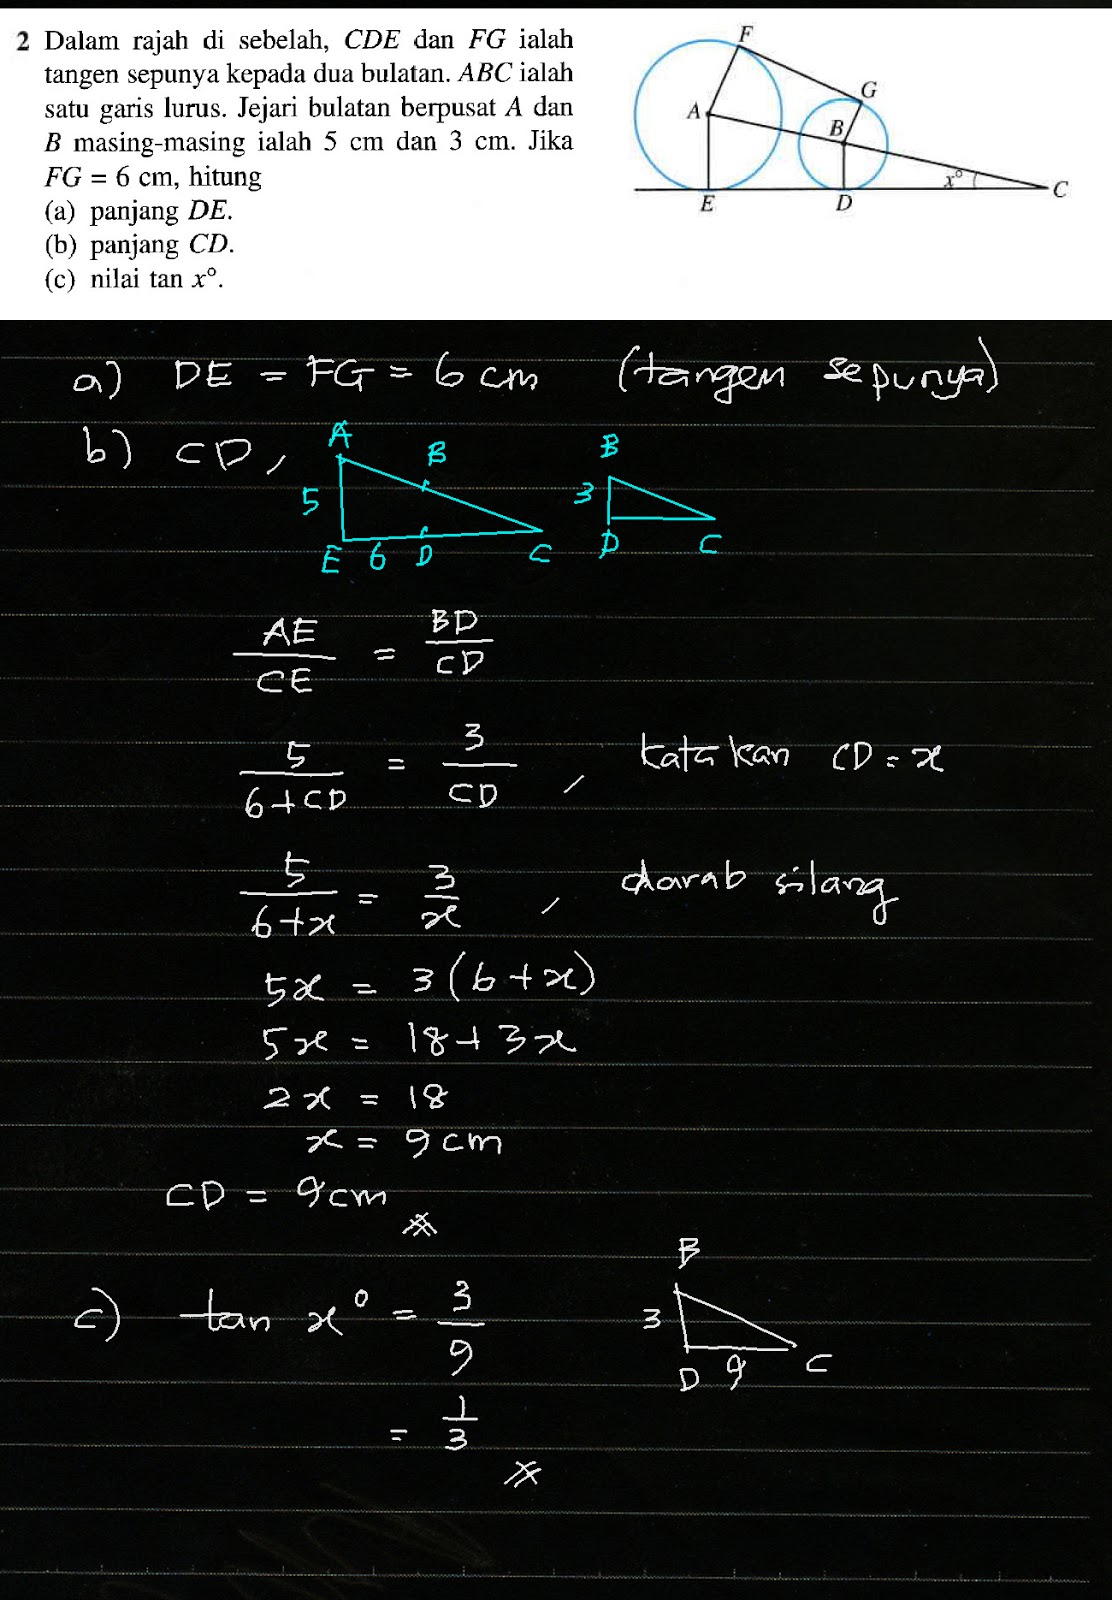 2 Dalam rajah di sebelah, CDE dan FG ialah
tangen sepunya kepada dua bulatan. ABC ialah
satu garis lurus. Jejari bulatan berpusat A dan
B masing-masing ialah 5 cm dan 3 cm. Jika
FG = 6 cm, hitung
(a) panjang DE.
(b) panjang CD.
(c) nilai tan x°.
F
G
A
B
x°
C
E
D
a) DE = FG = 6 cm (tangen sepunya)
b) CD,
A
B
5
E 6 D C
B
3
D C
AE/CE = BD/CD
5/(6+CD) = 3/CD , katakan CD = x
5/(6+x) = 3/x , darab silang
5x = 3(6+x)
5x = 18+3x
2x = 18
x = 9cm
CD = 9cm
c) tan x° = 3/9
B
3
D 9 C
= 1/3